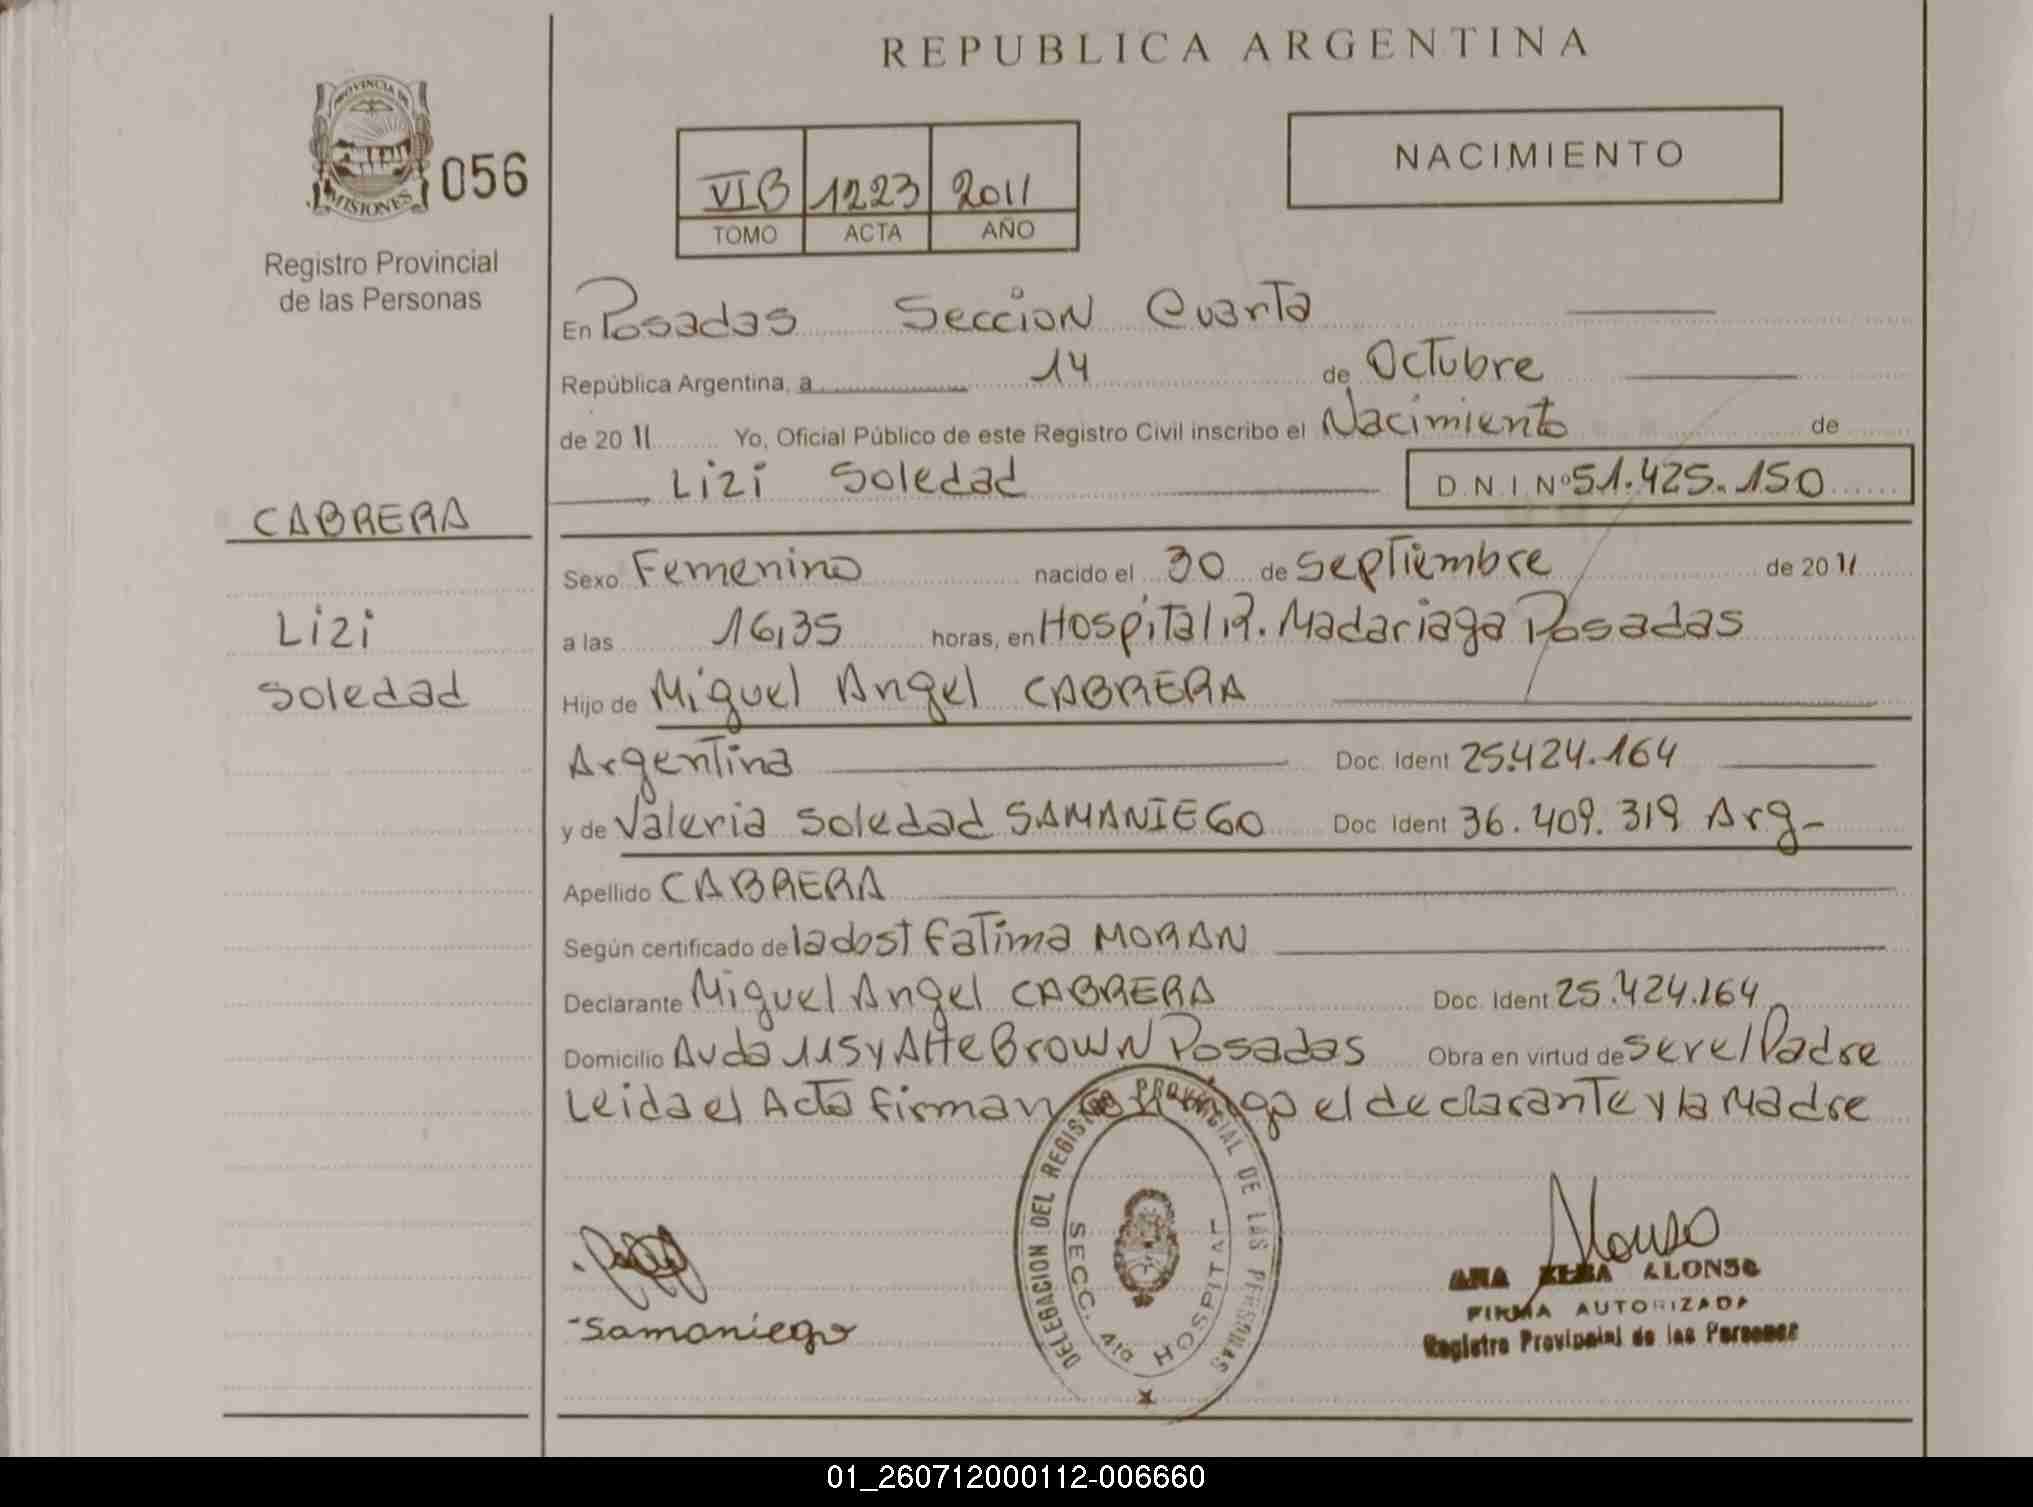 REPUBLICA ARGENTINA
PROVINCIA DE
MISIONES
056
Registro Provincial
de las Personas
VIB 1223 2011
TOMO ACTA AÑO
NACIMIENTO
En Posadas Sección Cuarta
República Argentina, a 14 de Octubre
de 20 11 Yo, Oficial Público de este Registro Civil inscribo el Nacimiento de
Lizi Soledad D.N.I Nº 51.425.150
CABRERA
Lizi
Soledad
Sexo Femenino nacido el 30 de septiembre de 20 11
a las 16,35 horas, en Hospital R. Madariaga Posadas
Hijo de Miguel Angel CABRERA
Argentina Doc. Ident 25.424.164
y de Valeria Soledad SAMANIEGO Doc Ident 36.409.319 Arg-
Apellido CABRERA
Según certificado de la obst Fatima MORAN
Declarante Miguel Angel CABRERA Doc. Ident 25.424.164
Domicilio Avda 115 y Alte Brown Posadas Obra en virtud de ser el Padre
Leida el Acta firman el declarante y la Madre
DELEGACION DEL REGISTRO PROVINCIAL DE LAS PERSONAS
SECC. 4ta HOSPITAL
Samaniego
Alonso
ANA ELBA ALONSO
FIRMA AUTORIZADA
Registro Provincial de las Personas
01_260712000112-006660